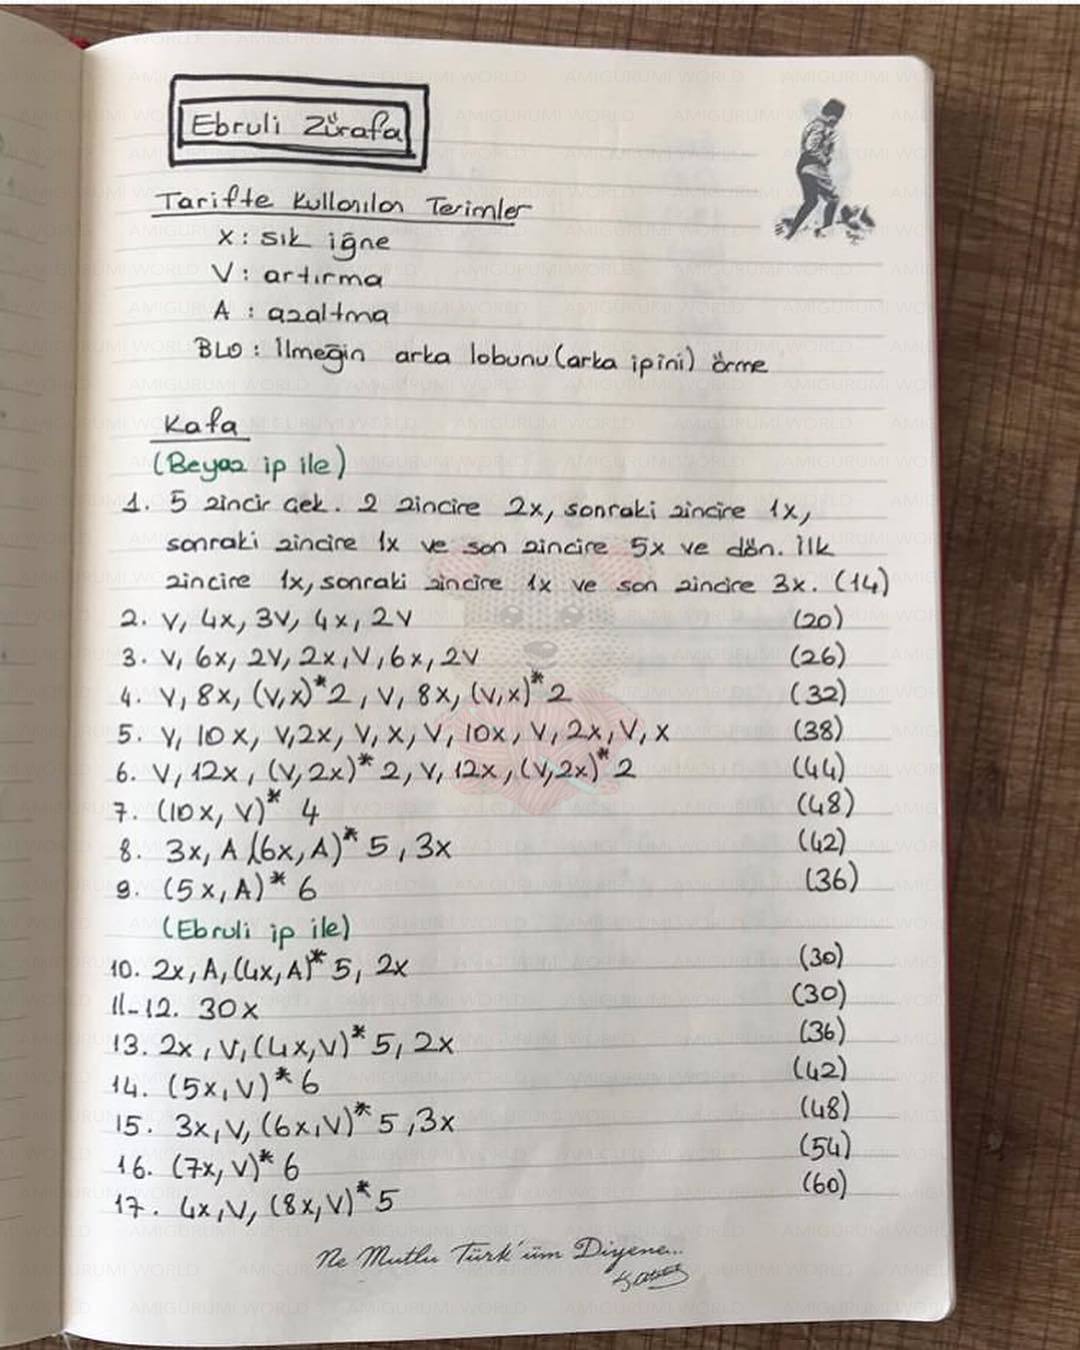 Ebruli Zürafa
Tarifte Kullanılan Terimler
X : sık iğne
V : artırma
A : azaltma
BLO : İlmeğin arka lobunu (arka ipini) örme
Kafa
(Beyaz ip ile)
1. 5 zincir çek. 2 zincire 2x, sonraki zincire 1x,
sonraki zincire 1x ve son zincire 5x ve dön. İlk
zincire 1x, sonraki zincire 1x ve son zincire 3x. (14)
2. V, 4x, 3V, 4x, 2V (20)
3. V, 6x, 2V, 2x, V, 6x, 2V (26)
4. V, 8x, (V,x)*2, V, 8x, (V,x)*2 (32)
5. V, 10x, V,2x, V, x, V, 10x, V, 2x, V, x (38)
6. V, 12x, (V,2x)*2, V, 12x, (V,2x)*2 (44)
7. (10x, V)* 4 (48)
8. 3x, A,(6x, A)* 5, 3x (42)
9. (5x, A)* 6 (36)
(Ebruli ip ile)
10. 2x, A, (4x,A)* 5, 2x (30)
11-12. 30x (30)
13. 2x, V, (4x,V)* 5, 2x (36)
14. (5x, V)* 6 (42)
15. 3x, V, (6x,V)* 5, 3x (48)
16. (7x, V)* 6 (54)
17. 4x, V, (8x, V)* 5 (60)
Ne Mutlu Türk'üm Diyene...
AMIGURUMI WORLD